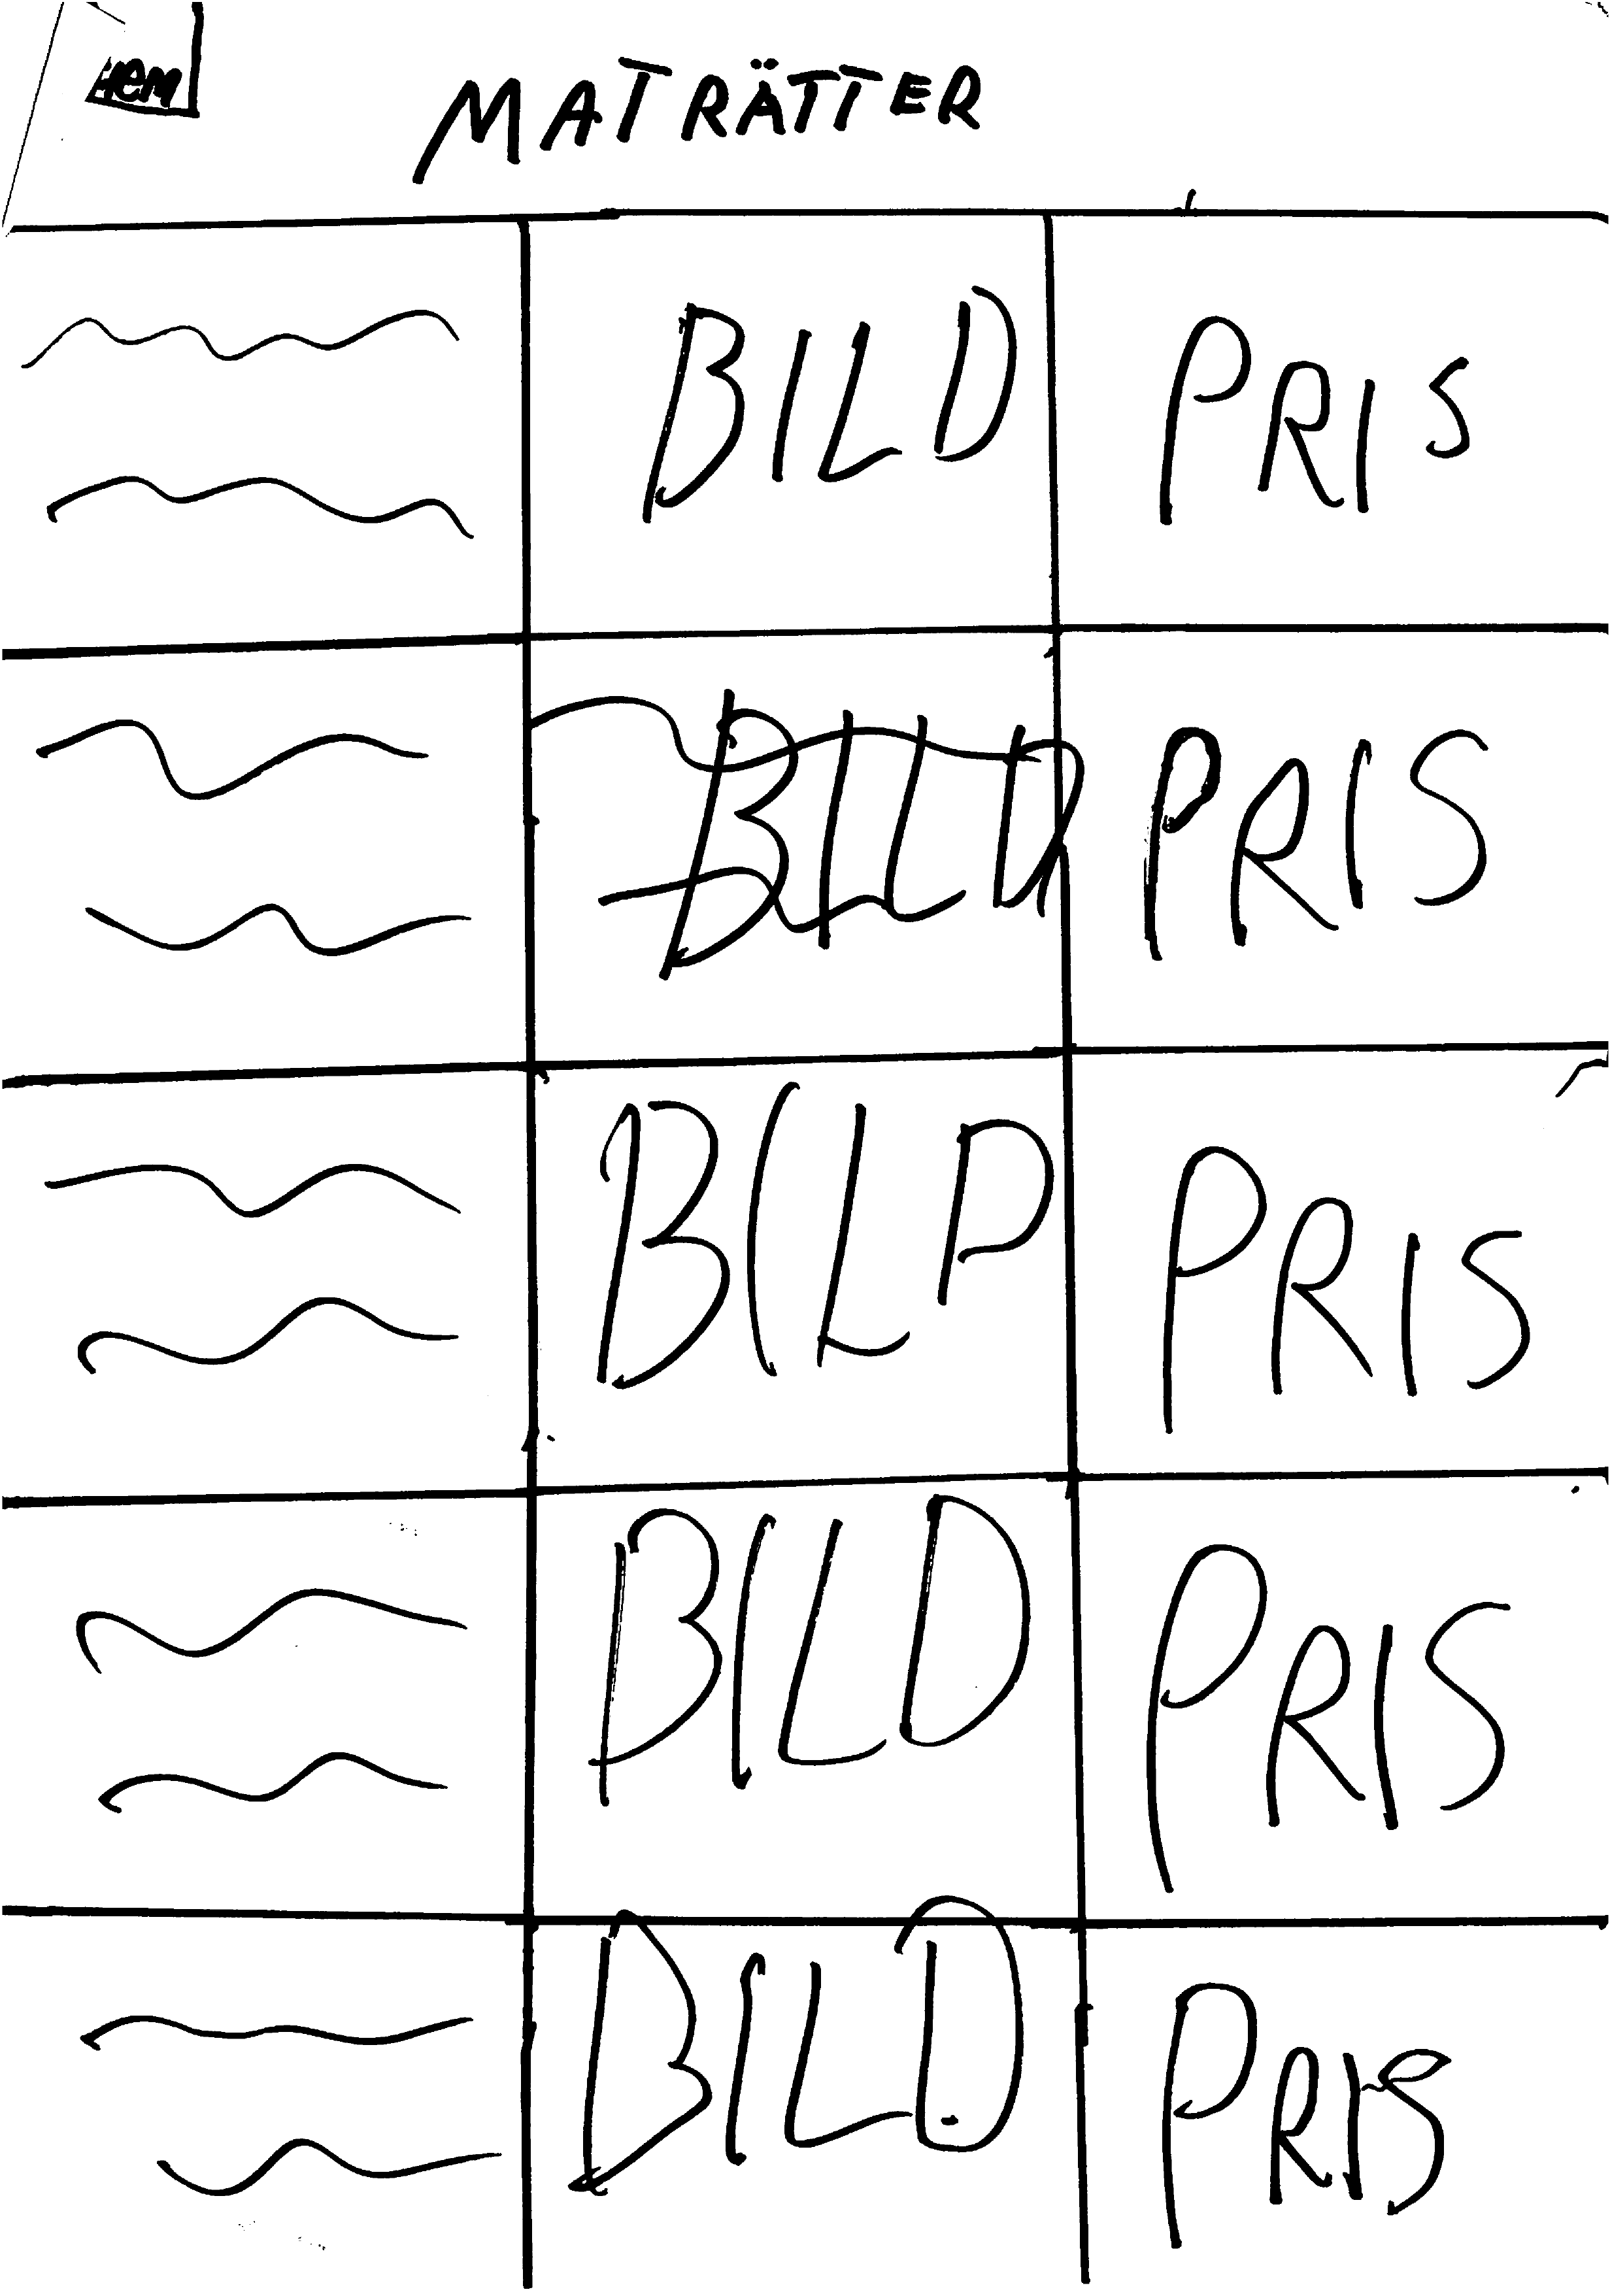 Hem
MATRÄTTER
BILD PRIS
BILD PRIS
BILD PRIS
BILD PRIS
BILD PRIS